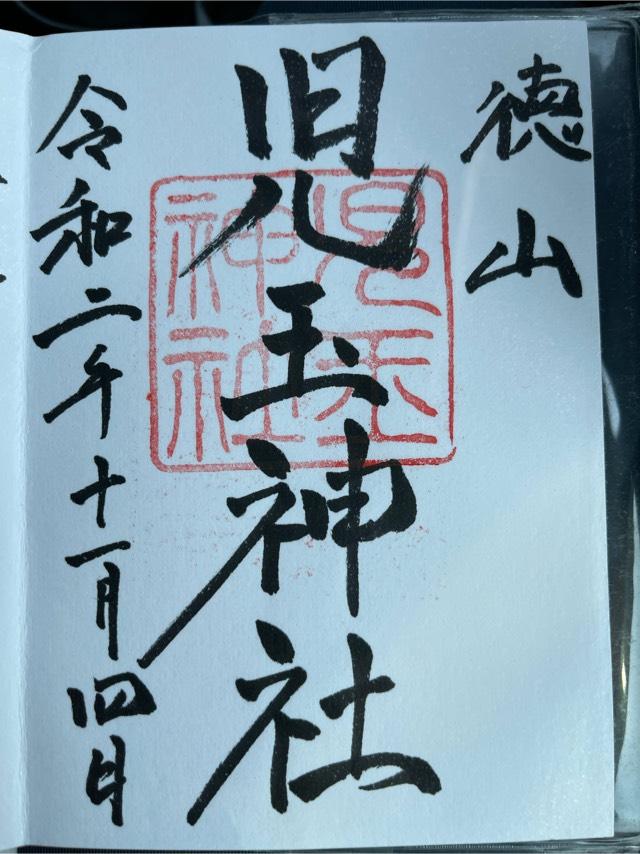 徳山
児玉神社
児玉神社
令和二年十一月四日